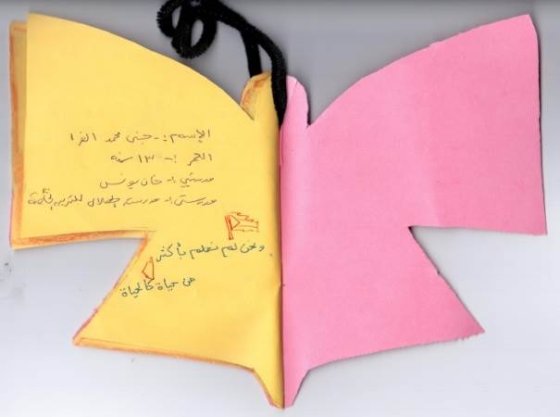 الإسم :- جنى محمد الفرا
العمر :- ١٣ سنه
مدينتي :- خان يونس
مدرستي :- مدرسة الهلال للتربية
ونحن لم نحلم بأكثر
من حياة كالحياة